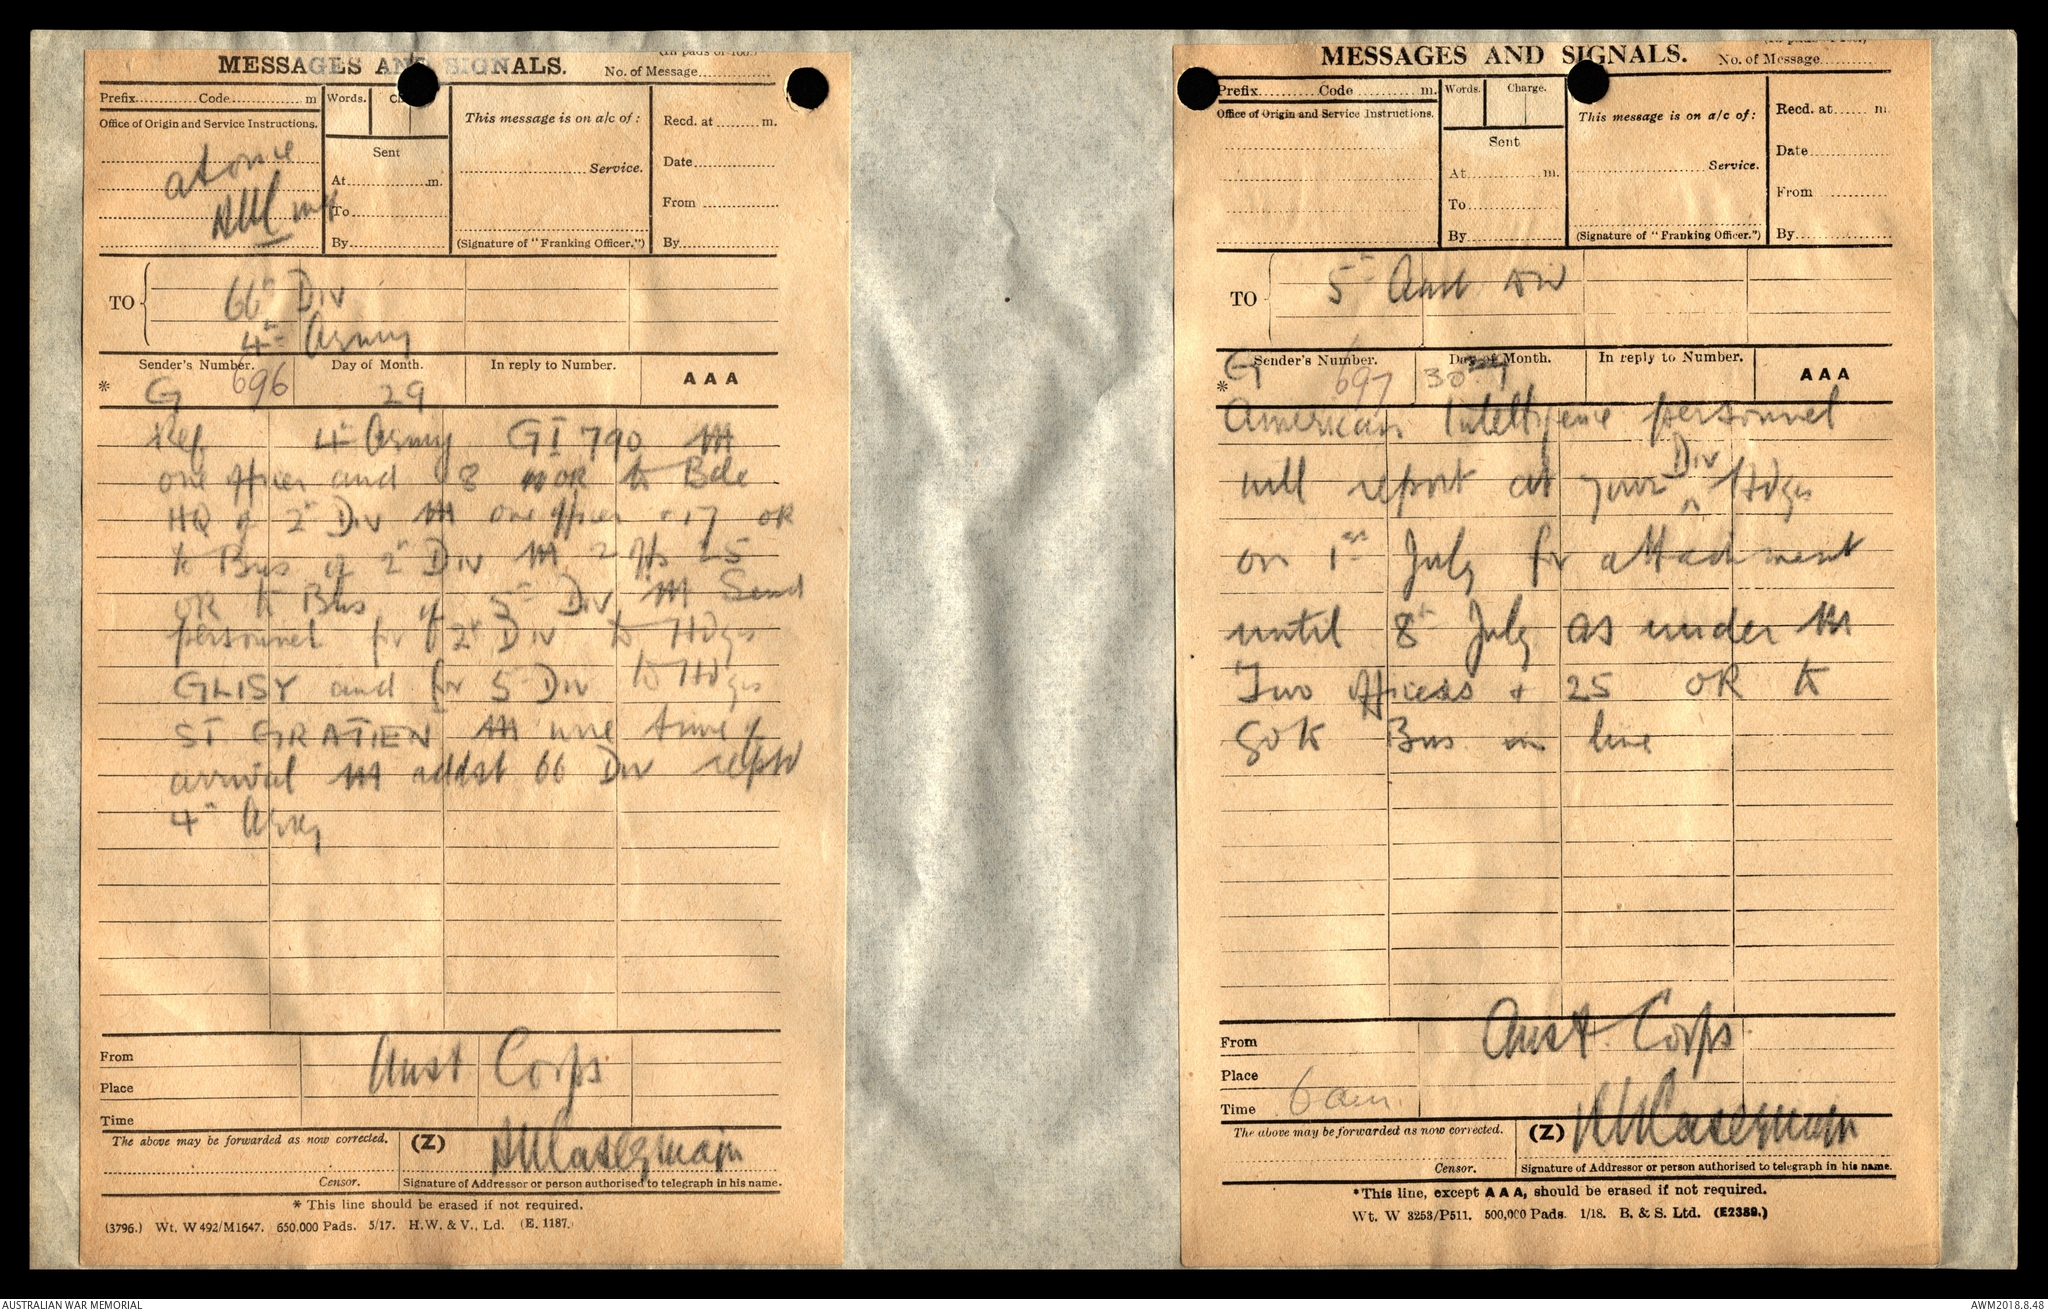 (In pads of 100.)
MESSAGES AND SIGNALS. No. of Message............
Prefix............Code...............m
Words.
Office of Origin and Service Instructions.
at once
RMC maj
Sent
At...............m.
To...............
By...............
This message is on a/c of:
...............Service.
(Signature of "Franking Officer.")
Recd. at ........ m.
Date...............
From ...............
By...............
TO
66th Div
4th Army
Sender's Number.
Day of Month.
In reply to Number.
AAA
* G 696 29
Ref 4th Army GI 790 AAA
one officer and 8 OR to Bde
HQ of 2nd Div AAA one officer + 17 OR
to Bns of 2nd Div AAA 2 offs 25
OR to Bns of 5th Div AAA Send
personnel for 2nd Div to Hdqs
GLISY and for 5 Div to Hdqs
ST. GRATIEN AAA wire time of
arrival AAA addsd 66 Div reptd
4th Army
From
Aust Corps
Place
Time
The above may be forwarded as now corrected.
(Z)
RMCasey major
Censor.
Signature of Addressor or person authorised to telegraph in his name.
* This line should be erased if not required.
(3796.) Wt. W 492/M1647. 650.000 Pads. 5/17. H.W. & V., Ld. (E. 1187.)
MESSAGES AND SIGNALS. No. of Message............
Prefix............Code ............m.
Words.
Charge.
Office of Origin and Service Instructions.
Sent
At...............m.
To...............
By...............
This message is on a/c of:
...............Service.
(Signature of "Franking Officer.")
Recd. at...... m.
Date...............
From ...............
By...............
TO
5th Aust Div
Sender's Number.
Day of Month.
In reply to Number.
AAA
* G 697 30
American Intelligence personnel
will report at your Div Hdqs
on 1st July for attachment
until 8th July as under AAA
Two officers + 25 OR to
go to Bns in line
From
Aust. Corps
Place
Time 6 am.
The above may be forwarded as now corrected.
(Z)
RMCasey major
Censor.
Signature of Addressor or person authorised to telegraph in his name.
*This line, except AAA, should be erased if not required.
Wt. W 3253/P511. 500,000 Pads. 1/18. B. & S. Ltd. (E2389.)
AUSTRALIAN WAR MEMORIAL
AWM2018.8.48